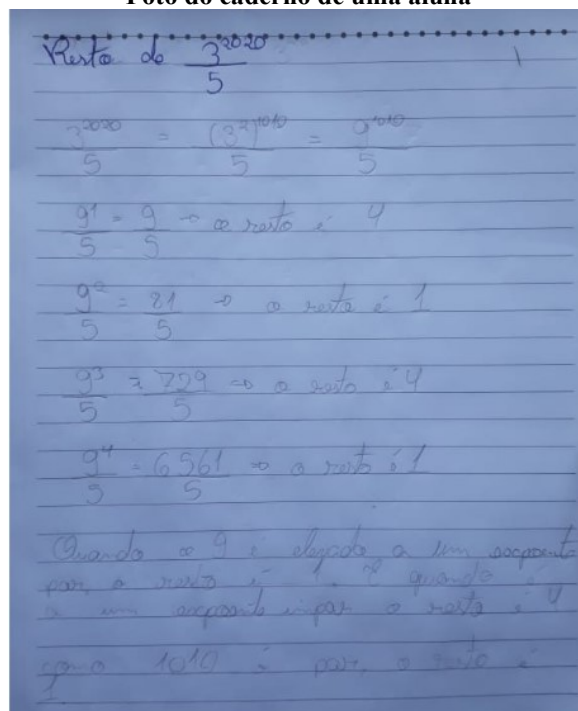 Foto do caderno de uma aluna
Resto de 3^2020 / 5
1
3^2020 / 5 = (3^2)^1010 / 5 = 9^1010 / 5
9^1 / 5 = 9 / 5 → o resto é 4
9^2 / 5 = 81 / 5 → o resto é 1
9^3 / 5 = 729 / 5 → o resto é 4
9^4 / 5 = 6561 / 5 → o resto é 1
Quando o 9 é elevado a um expoente
par, o resto é 1. E quando é
a um expoente impar o resto é 4
como 1010 é par, o resto é
1